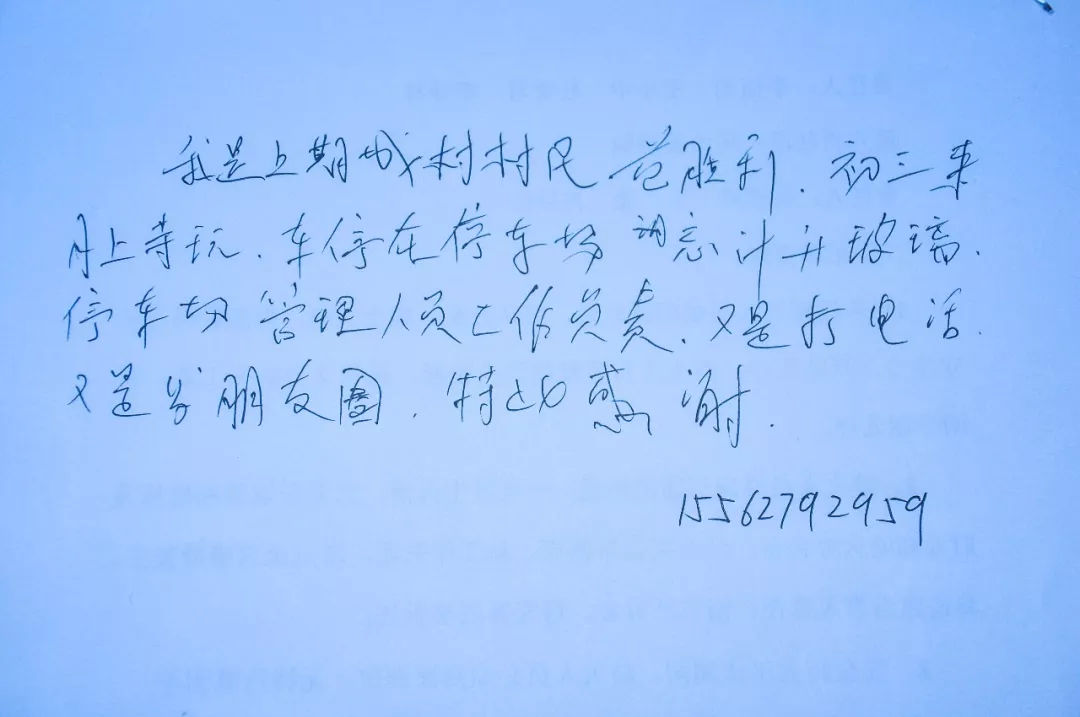 我是上期城村村民范胜利.初三来
月上寺玩.车停在停车场 忘计升玻璃.
停车场管理人员工作负责.又是打电话.
又是发朋友圈.特此感谢.
15562792959